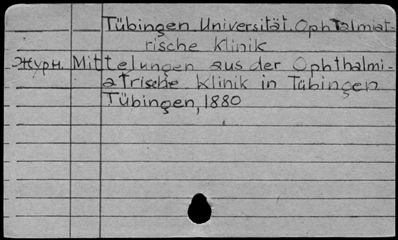 Tübingen. Universität. Ophtalmiat-
rische Klinik
Журн. Mittelungen aus der Ophthalmi-
atrische Klinik in Tübingen
Tübingen, 1880